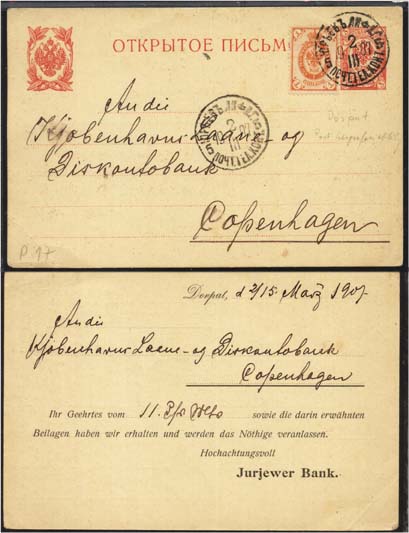 ОТКРЫТОЕ ПИСЬМО
Dorpat
An die
Kjöbenhavns Laane- og
Diskontobank
Copenhagen
P. 17
Dorpat, d 2/15. März 1907.
An die
Kjöbenhavns Laane- og Diskontobank
Copenhagen
Ihr Geehrtes vom 11. sowie die darin erwähnten
Beilagen haben wir erhalten und werden das Nöthige veranlassen.
Hochachtungsvoll
Jurjewer Bank.